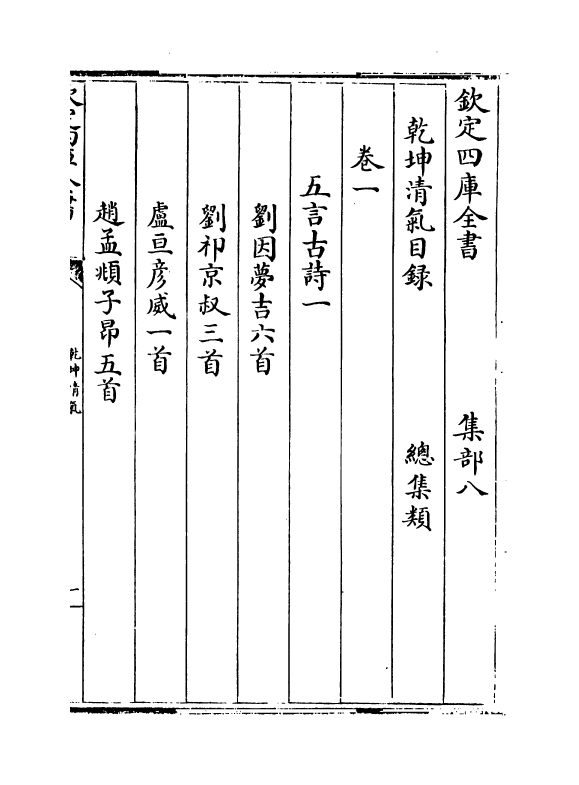 欽定四庫全書　集部八
乾坤清氣目録　總集類
卷一
五言古詩一
劉因夢吉六首
劉祁京叔三首
盧亘彦威一首
趙孟頫子昂五首
乾坤清氣